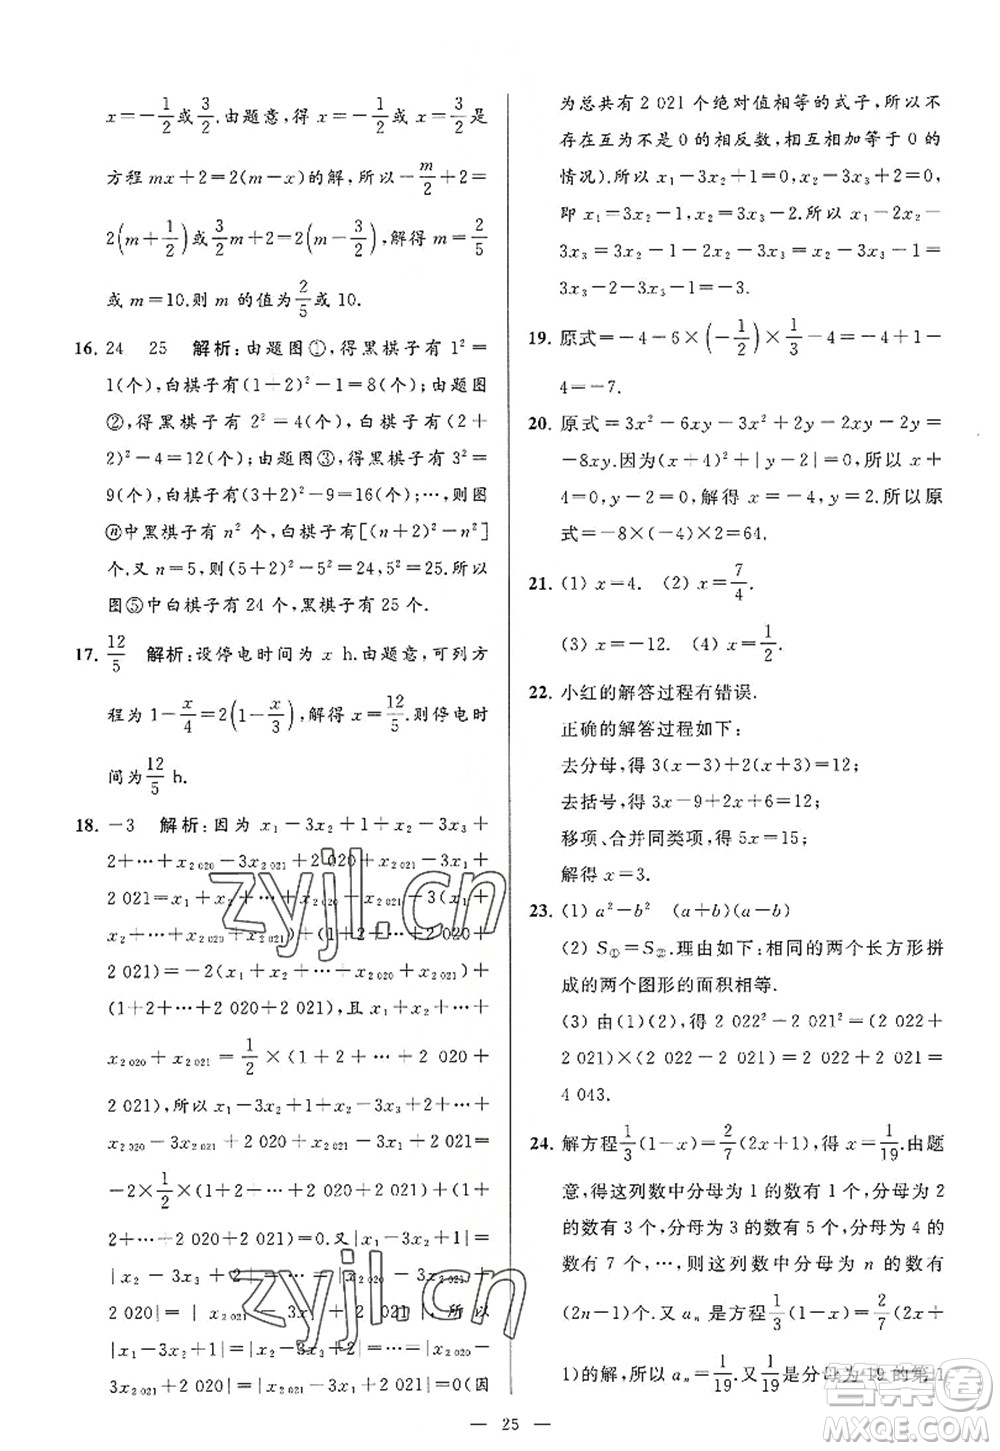 x=-1/2或3/2.由题意,得 x=-1/2或3/2是
方程 mx+2=2(m-x)的解,所以-m/2+2=
2(m+1/2)或3/2m+2=2(m-3/2),解得 m=2/5
或 m=10.则 m 的值为2/5或 10.
16. 24 25 解析:由题图①,得黑棋子有 1²=
1(个),白棋子有(1+2)²-1=8(个);由题图
②,得黑棋子有 2²=4(个),白棋子有(2+
2)²-4=12(个);由题图③,得黑棋子有 3²=
9(个),白棋子有(3+2)²-9=16(个);…,则图
ⓝ中黑棋子有 n² 个,白棋子有[(n+2)²-n²]
个.又 n=5,则(5+2)²-5²=24,5²=25.所以
图⑤中白棋子有 24 个,黑棋子有 25 个.
17. 12/5 解析:设停电时间为 x h.由题意,可列方
程为 1-x/4=2(1-x/3),解得 x=12/5.则停电时
间为12/5 h.
18. -3 解析:因为 x₁-3x₂+1+x₂-3x₃+
2+…+x₂ ₀₂₀-3x₂ ₀₂₁+2 020+x₂ ₀₂₁-3x₁+
2 021=x₁+x₂+…+x₂ ₀₂₀+x₂ ₀₂₁-3(x₁+
x₂+…+x₂ ₀₂₀+x₂ ₀₂₁)+(1+2+…+2 020+
2 021)=-2(x₁+x₂+…+x₂ ₀₂₀+x₂ ₀₂₁)+
(1+2+…+2 020+2 021),且 x₁+x₂+…+
x₂ ₀₂₀+x₂ ₀₂₁=1/2×(1+2+…+2 020+
2 021),所以 x₁-3x₂+1+x₂-3x₃+2+…+
x₂ ₀₂₀-3x₂ ₀₂₁+2 020+x₂ ₀₂₁-3x₁+2 021=
-2×1/2×(1+2+…+2 020+2 021)+(1+
2+…+2 020+2 021)=0.又|x₁-3x₂+1|=
|x₂-3x₃+2|=…=|x₂ ₀₂₀-3x₂ ₀₂₁+
2 020|=|x₂ ₀₂₁-3x₁+2 021|,所以
|x₁-3x₂+1|=|x₂-3x₃+2|=…=|x₂ ₀₂₀-
3x₂ ₀₂₁+2 020|=|x₂ ₀₂₁-3x₁+2 021|=0(因
为总共有 2 021 个绝对值相等的式子,所以不
存在互为不是 0 的相反数,相互相加等于 0 的
情况).所以 x₁-3x₂+1=0,x₂-3x₃+2=0,
即 x₁=3x₂-1,x₂=3x₃-2.所以 x₁-2x₂-
3x₃=3x₂-1-2x₂-3x₃=x₂-3x₃-1=
3x₃-2-3x₃-1=-3.
19. 原式=-4-6×(-1/2)×1/3-4=-4+1-
4=-7.
20. 原式=3x²-6xy-3x²+2y-2xy-2y=
-8xy.因为(x+4)²+|y-2|=0,所以 x+
4=0,y-2=0,解得 x=-4,y=2.所以原
式=-8×(-4)×2=64.
21. (1) x=4. (2) x=7/4.
(3) x=-12. (4) x=1/2.
22. 小红的解答过程有错误.
正确的解答过程如下:
去分母,得 3(x-3)+2(x+3)=12;
去括号,得 3x-9+2x+6=12;
移项、合并同类项,得 5x=15;
解得 x=3.
23. (1) a²-b² (a+b)(a-b)
(2) S①=S②.理由如下:相同的两个长方形拼
成的两个图形的面积相等.
(3) 由(1)(2),得 2 022²-2 021²=(2 022+
2 021)×(2 022-2 021)=4 043×1=
4 043.
24. 解方程1/3(1-x)=2/7(2x+1),得 x=1/19.由题
意,得这列数中分母为 1 的数有 1 个,分母为 2
的数有 3 个,分母为 3 的数有 5 个,分母为 4 的
数有 7 个,…,则这列数中分母为 n 的数有
(2n-1)个.又 aₙ 是方程1/3(1-x)=2/7(2x+
1)的解,所以 aₙ=1/19.又1/19是分母为 19 的第 1
— 25 —
zyjl.cn
zyjl.cn
答案圈
MXQE.COM